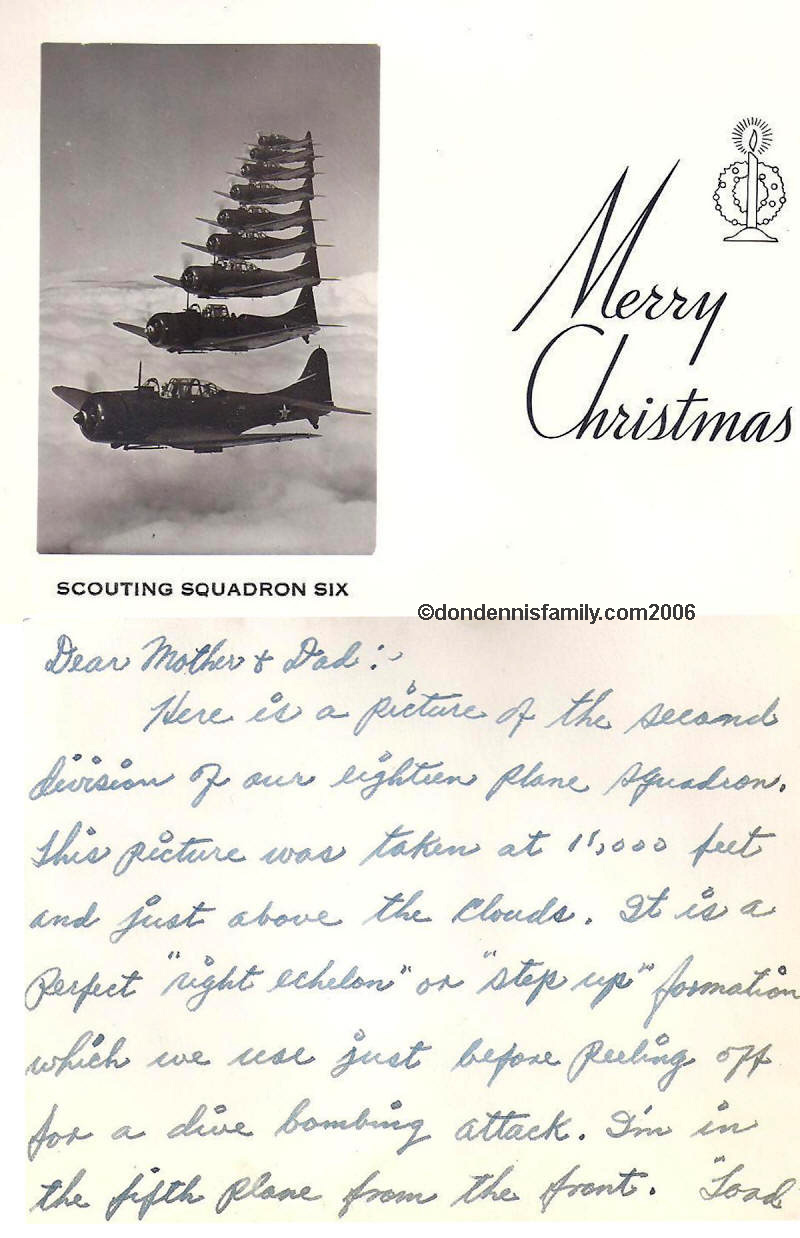 Merry
Christmas
SCOUTING SQUADRON SIX
©dondennisfamily.com2006
Dear Mother & Dad:
Here is a picture of the second
division of our eighteen plane squadron.
This picture was taken at 11,000 feet
and just above the clouds. It is a
perfect "right echelon" or "step up" formation
which we use just before peeling off
for a dive bombing attack. I'm in
the fifth plane from the front. "Toad